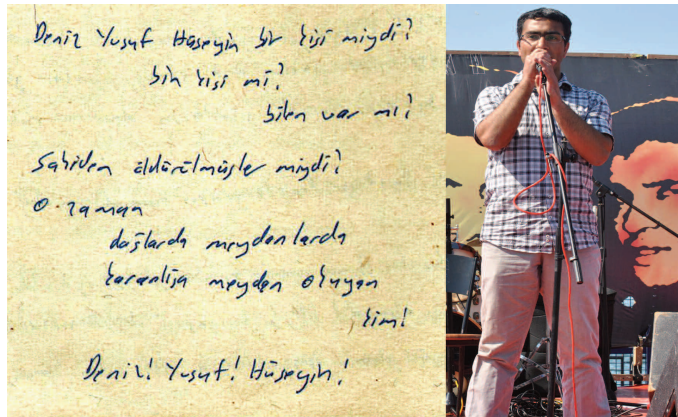 Deniz Yusuf Hüseyin bir kişi miydi?
bin kişi mi?
bilen var mı?
Sahiden öldürülmüşler miydi?
O zaman
dağlarda meydanlarda
karanlığa meydan okuyan
kim!
Deniz! Yusuf! Hüseyin!